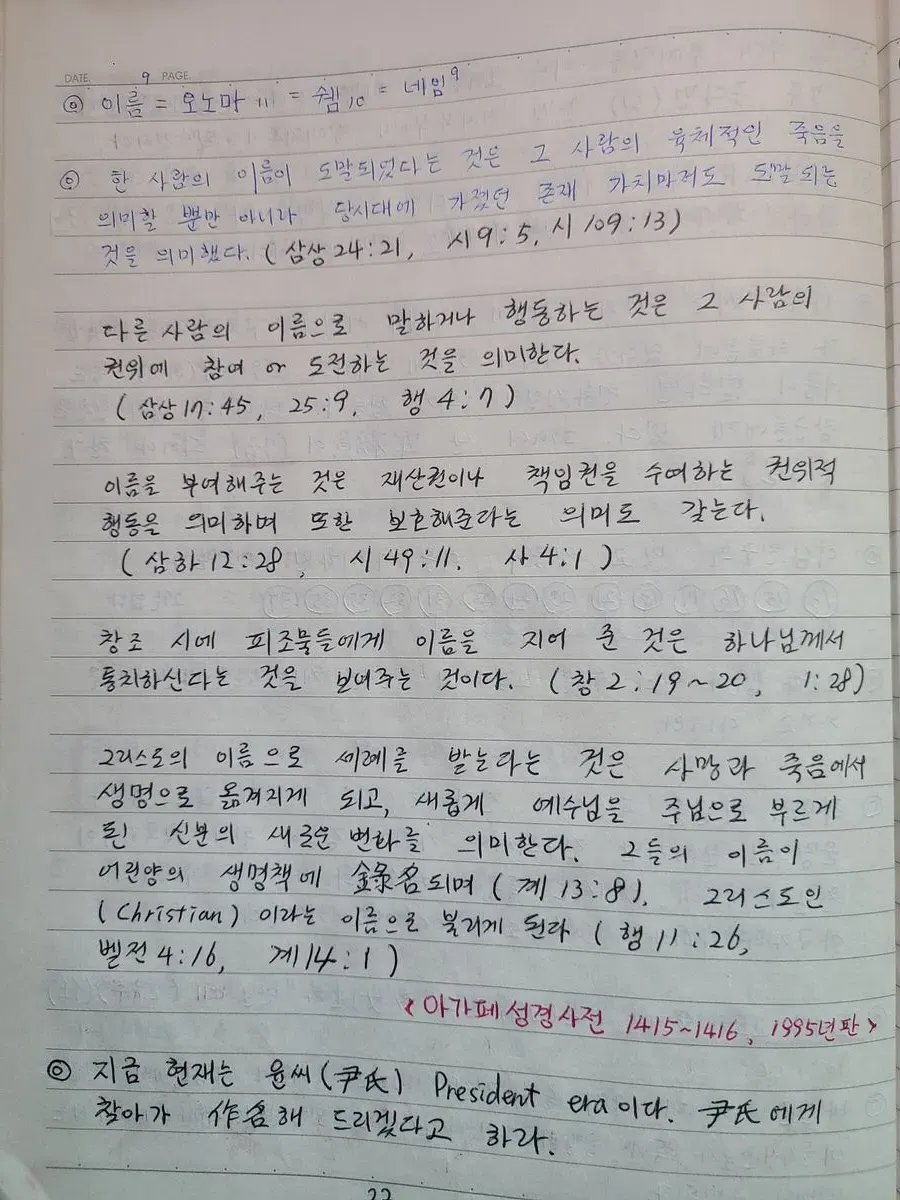 DATE. 9 PAGE.
ⓐ 이름 = 오노마 11 = 쉠 10 = 네임 9
ⓒ 한 사람의 이름이 도말되었다는 것은 그 사람의 육체적인 죽음을
의미할 뿐만 아니라 당시대에 가졌던 존재 가치마저도 도말되는
것을 의미했다. (삼상 24:21, 시 9:5, 시 109:13)
다른 사람의 이름으로 말하거나 행동하는 것은 그 사람의
권위에 참여 or 도전하는 것을 의미한다.
(삼상 17:45, 25:9, 행 4:7)
이름을 부여해주는 것은 재산권이나 책임권을 수여하는 권위적
행동을 의미하며 또한 보호해준다는 의미도 갖는다.
(삼하 12:28, 시 49:11, 사 4:1)
창조 시에 피조물들에게 이름을 지어 준 것은 하나님께서
통치하신다는 것을 보여주는 것이다. (창 2:19~20, 1:28)
그리스도의 이름으로 세례를 받는다는 것은 사망과 죽음에서
생명으로 옮겨지게 되고, 새롭게 예수님을 주님으로 부르게
된 신분의 새로운 변화를 의미한다. 그들의 이름이
어린양의 생명책에 錄名되며 (계 13:8), 그리스도인
(Christian) 이라는 이름으로 불리게 된다 (행 11:26,
벧전 4:16, 계 14:1)
<아가페 성경사전 1415~1416, 1995년판>
◎ 지금 현재는 윤씨(尹氏) President era이다. 尹氏에게
찾아가 作名해 드리겠다고 하라.
22